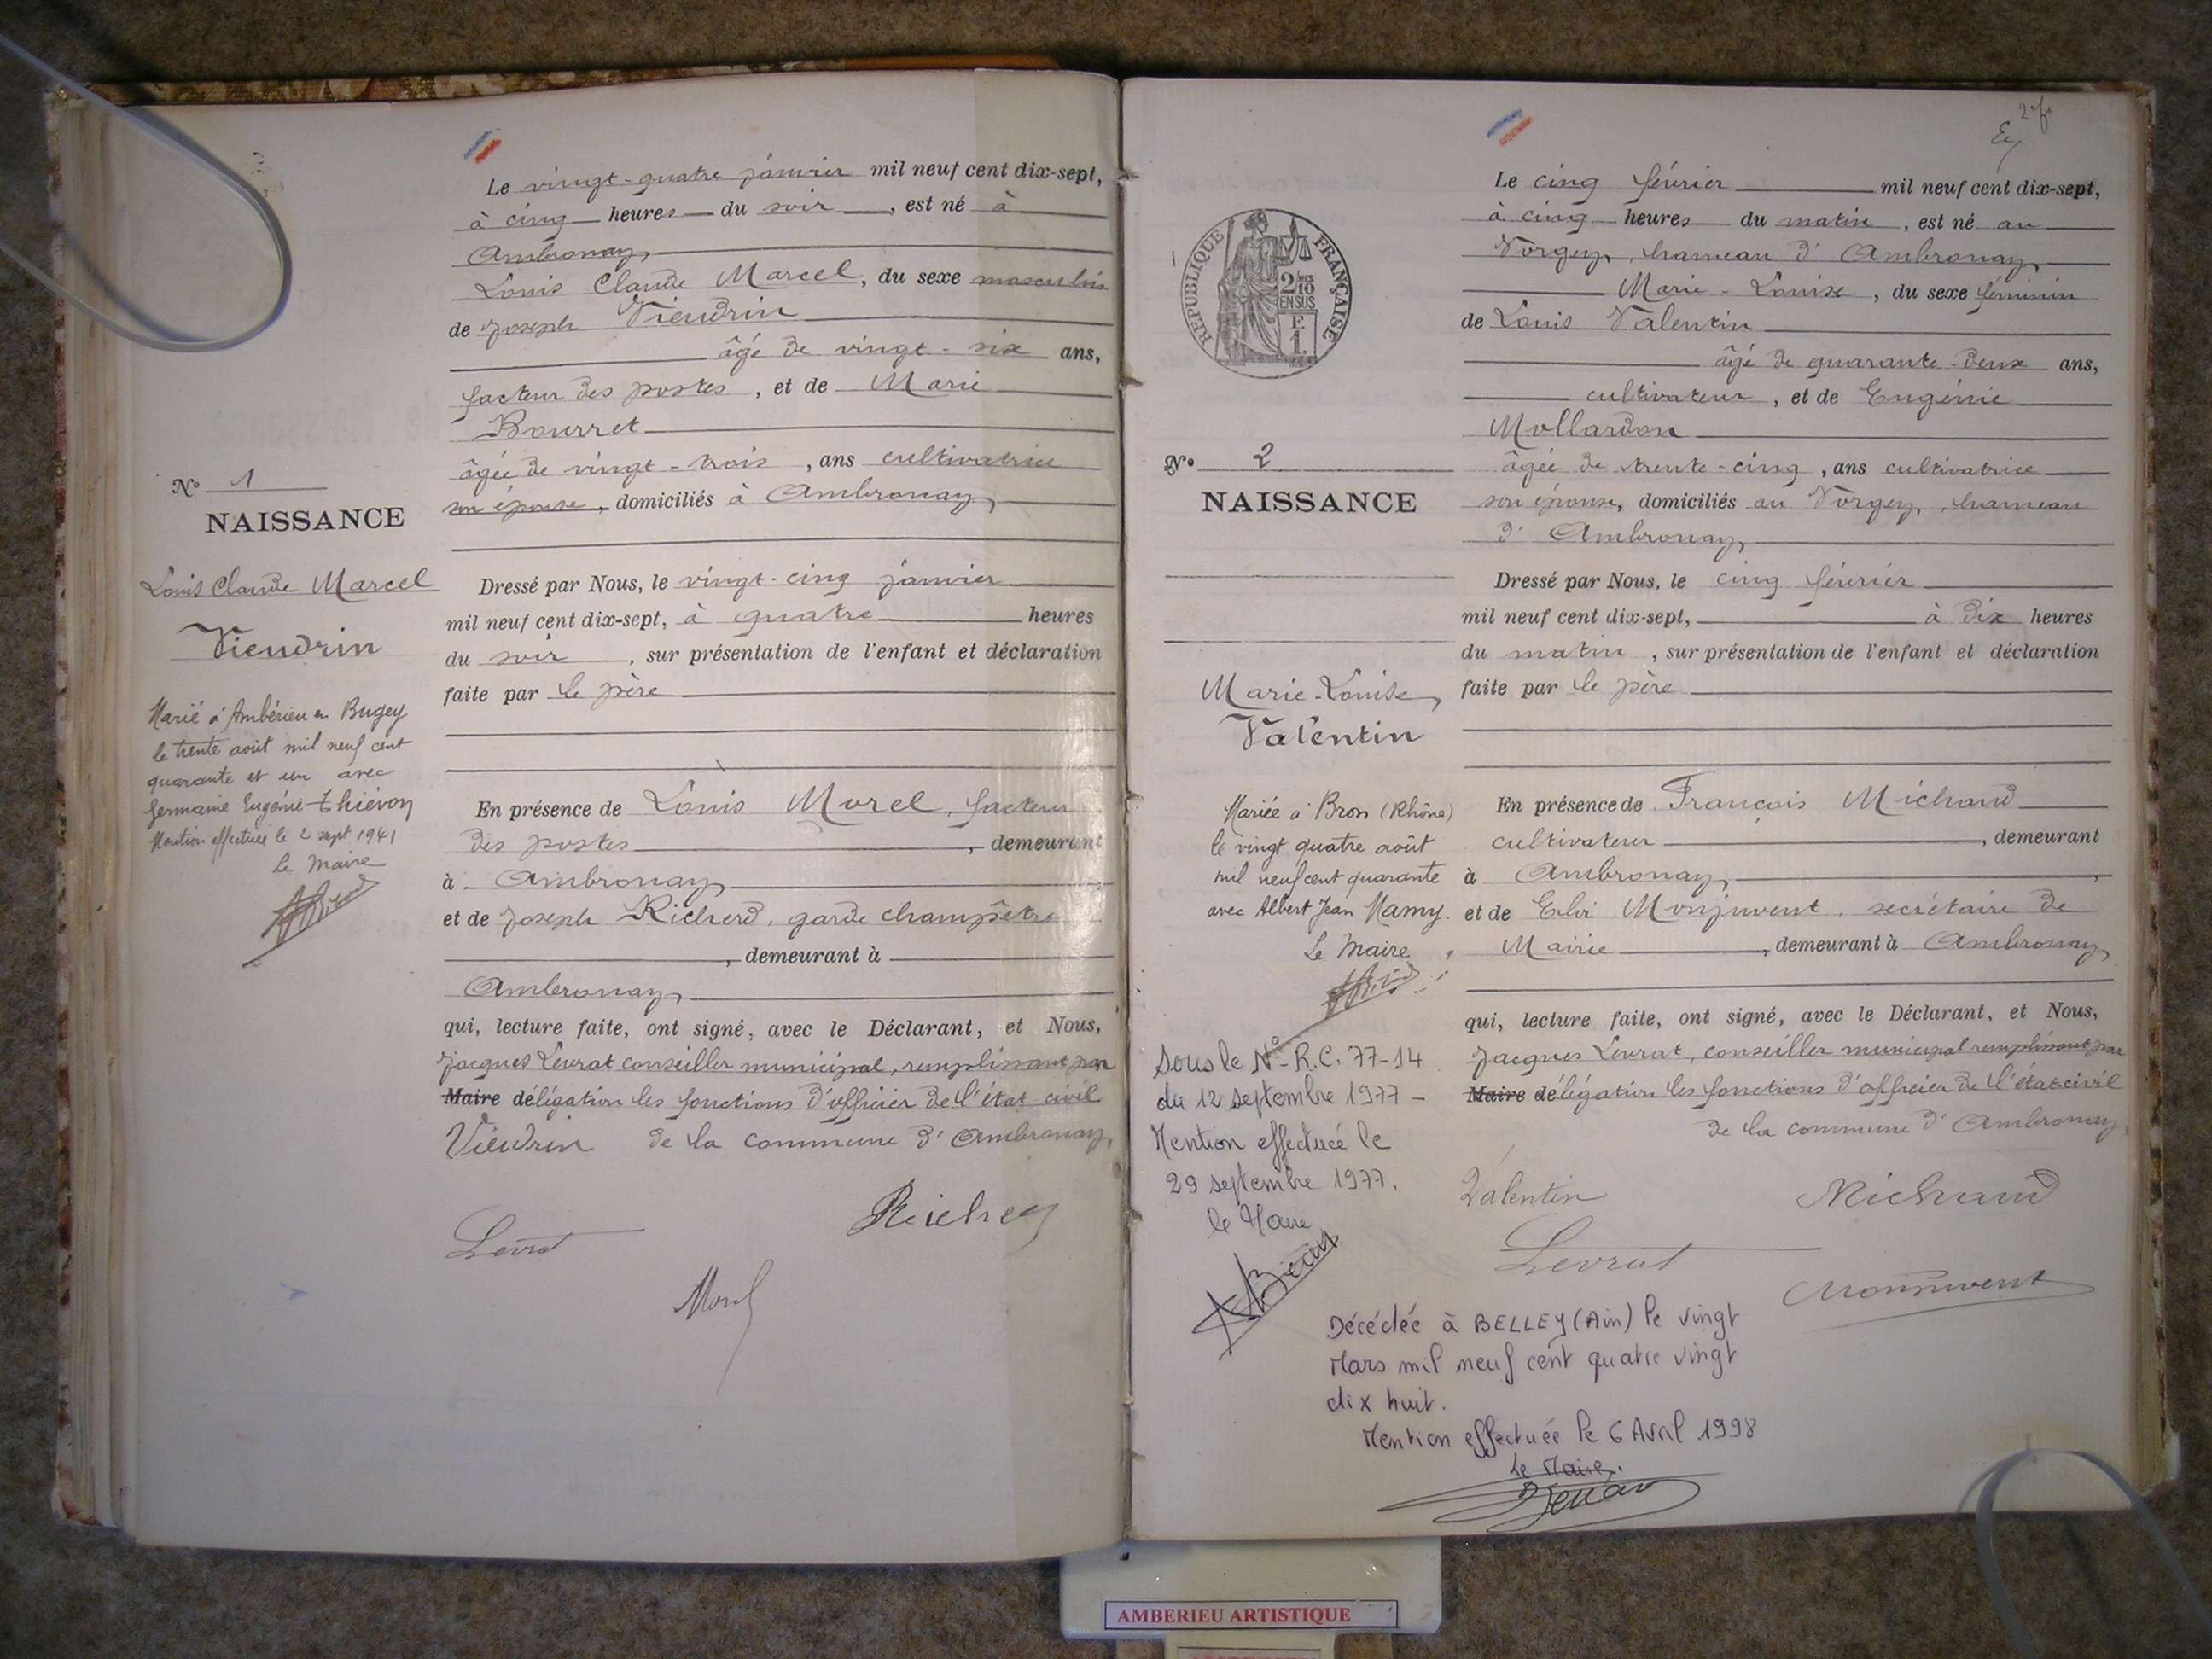 Le vingt-quatre janvier mil neuf cent dix-sept,
à cinq heures du soir, est né à
Ambronay,
Louis Claude Marcel, du sexe masculin
de Joseph Vieudrin
âgé de vingt-six ans,
facteur des postes, et de Marie
Bourret
âgée de vingt-trois, ans cultivatrice
son épouse, domiciliés à Ambronay,
N° 1
NAISSANCE
Louis Claude Marcel
Vieudrin
Marié à Ambérieu en Bugey
le trente août mil neuf cent
quarante et un avec
Germaine Eugénie Thiévon
Mention effectuée le 2 sept 1941
Le Maire
Dressé par Nous, le vingt-cinq janvier
mil neuf cent dix-sept, à quatre heures
du soir, sur présentation de l'enfant et déclaration
faite par le père
En présence de Louis Morel, facteur
des postes, demeurant
à Ambronay,
et de Joseph Richerd, garde champêtre
, demeurant à
Ambronay,
qui, lecture faite, ont signé, avec le Déclarant, et Nous,
Jacques Levrat conseiller municipal, remplissant par
Maire délégation les fonctions d'officier de l'état civil
Vieudrin de la commune d'Ambronay,
Levrat
Morel
2 Ey
Le cinq février mil neuf cent dix-sept,
à cinq heures du matin, est né au
Vorgey, hameau d'Ambronay,
Marie-Louise, du sexe féminin
de Louis Valentin
âgé de quarante-deux ans,
cultivateur, et de Eugénie
Mollardon
âgée de trente-cinq, ans cultivatrice
son épouse, domiciliés au Vorgey, hameau
d'Ambronay,
RÉPUBLIQUE FRANÇAISE
2/10
EN SUS
F.
1.
N° 2
NAISSANCE
Marie-Louise,
Valentin
Mariée à Bron (Rhône)
le vingt quatre août
mil neuf cent quarante
avec Albert Jean Mamy.
Le Maire
Sous le N° R.C. 77-14
du 12 septembre 1977 -
Mention effectuée le
29 septembre 1977.
le Maire
Dressé par Nous, le cinq février
mil neuf cent dix-sept, à dix heures
du matin, sur présentation de l'enfant et déclaration
faite par le père
En présence de François Michaud
cultivateur, demeurant
à Ambronay,
et de Eloi Monjuvent, secrétaire de
Mairie, demeurant à Ambronay,
qui, lecture faite, ont signé, avec le Déclarant, et Nous,
Jacques Levrat, conseiller municipal remplissant par
Maire délégation les fonctions d'officier de l'état civil
de la commune d'Ambronay,
Valentin Michaud
Levrat
Monjuvent
Décédée à BELLEY (Ain) le vingt
Mars mil neuf cent quatre vingt
dix huit.
Mention effectuée le 6 Avril 1998
Le Maire.
AMBERIEU ARTISTIQUE